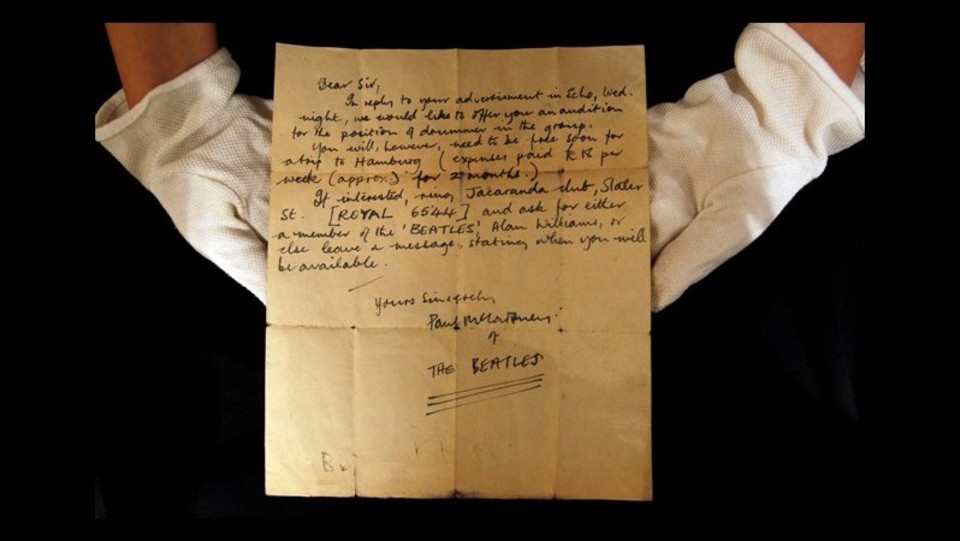 Dear Sir,
In reply to your advertisment in Echo, Wed.
night, we would like to offer you an audition
for the position of drummer in the group.
You will, however, need to be free soon for
a trip to Hamburg (expenses paid £18 per
week (approx.) for 2 months.)
If interested, ring Jacaranda club, Slater
St. [ROYAL 6544] and ask for either
a member of the 'BEATLES', Alan Williams, or
else leave a message, stating when you will
be available.
Yours Sincerely
Paul McCartney.
of
THE BEATLES